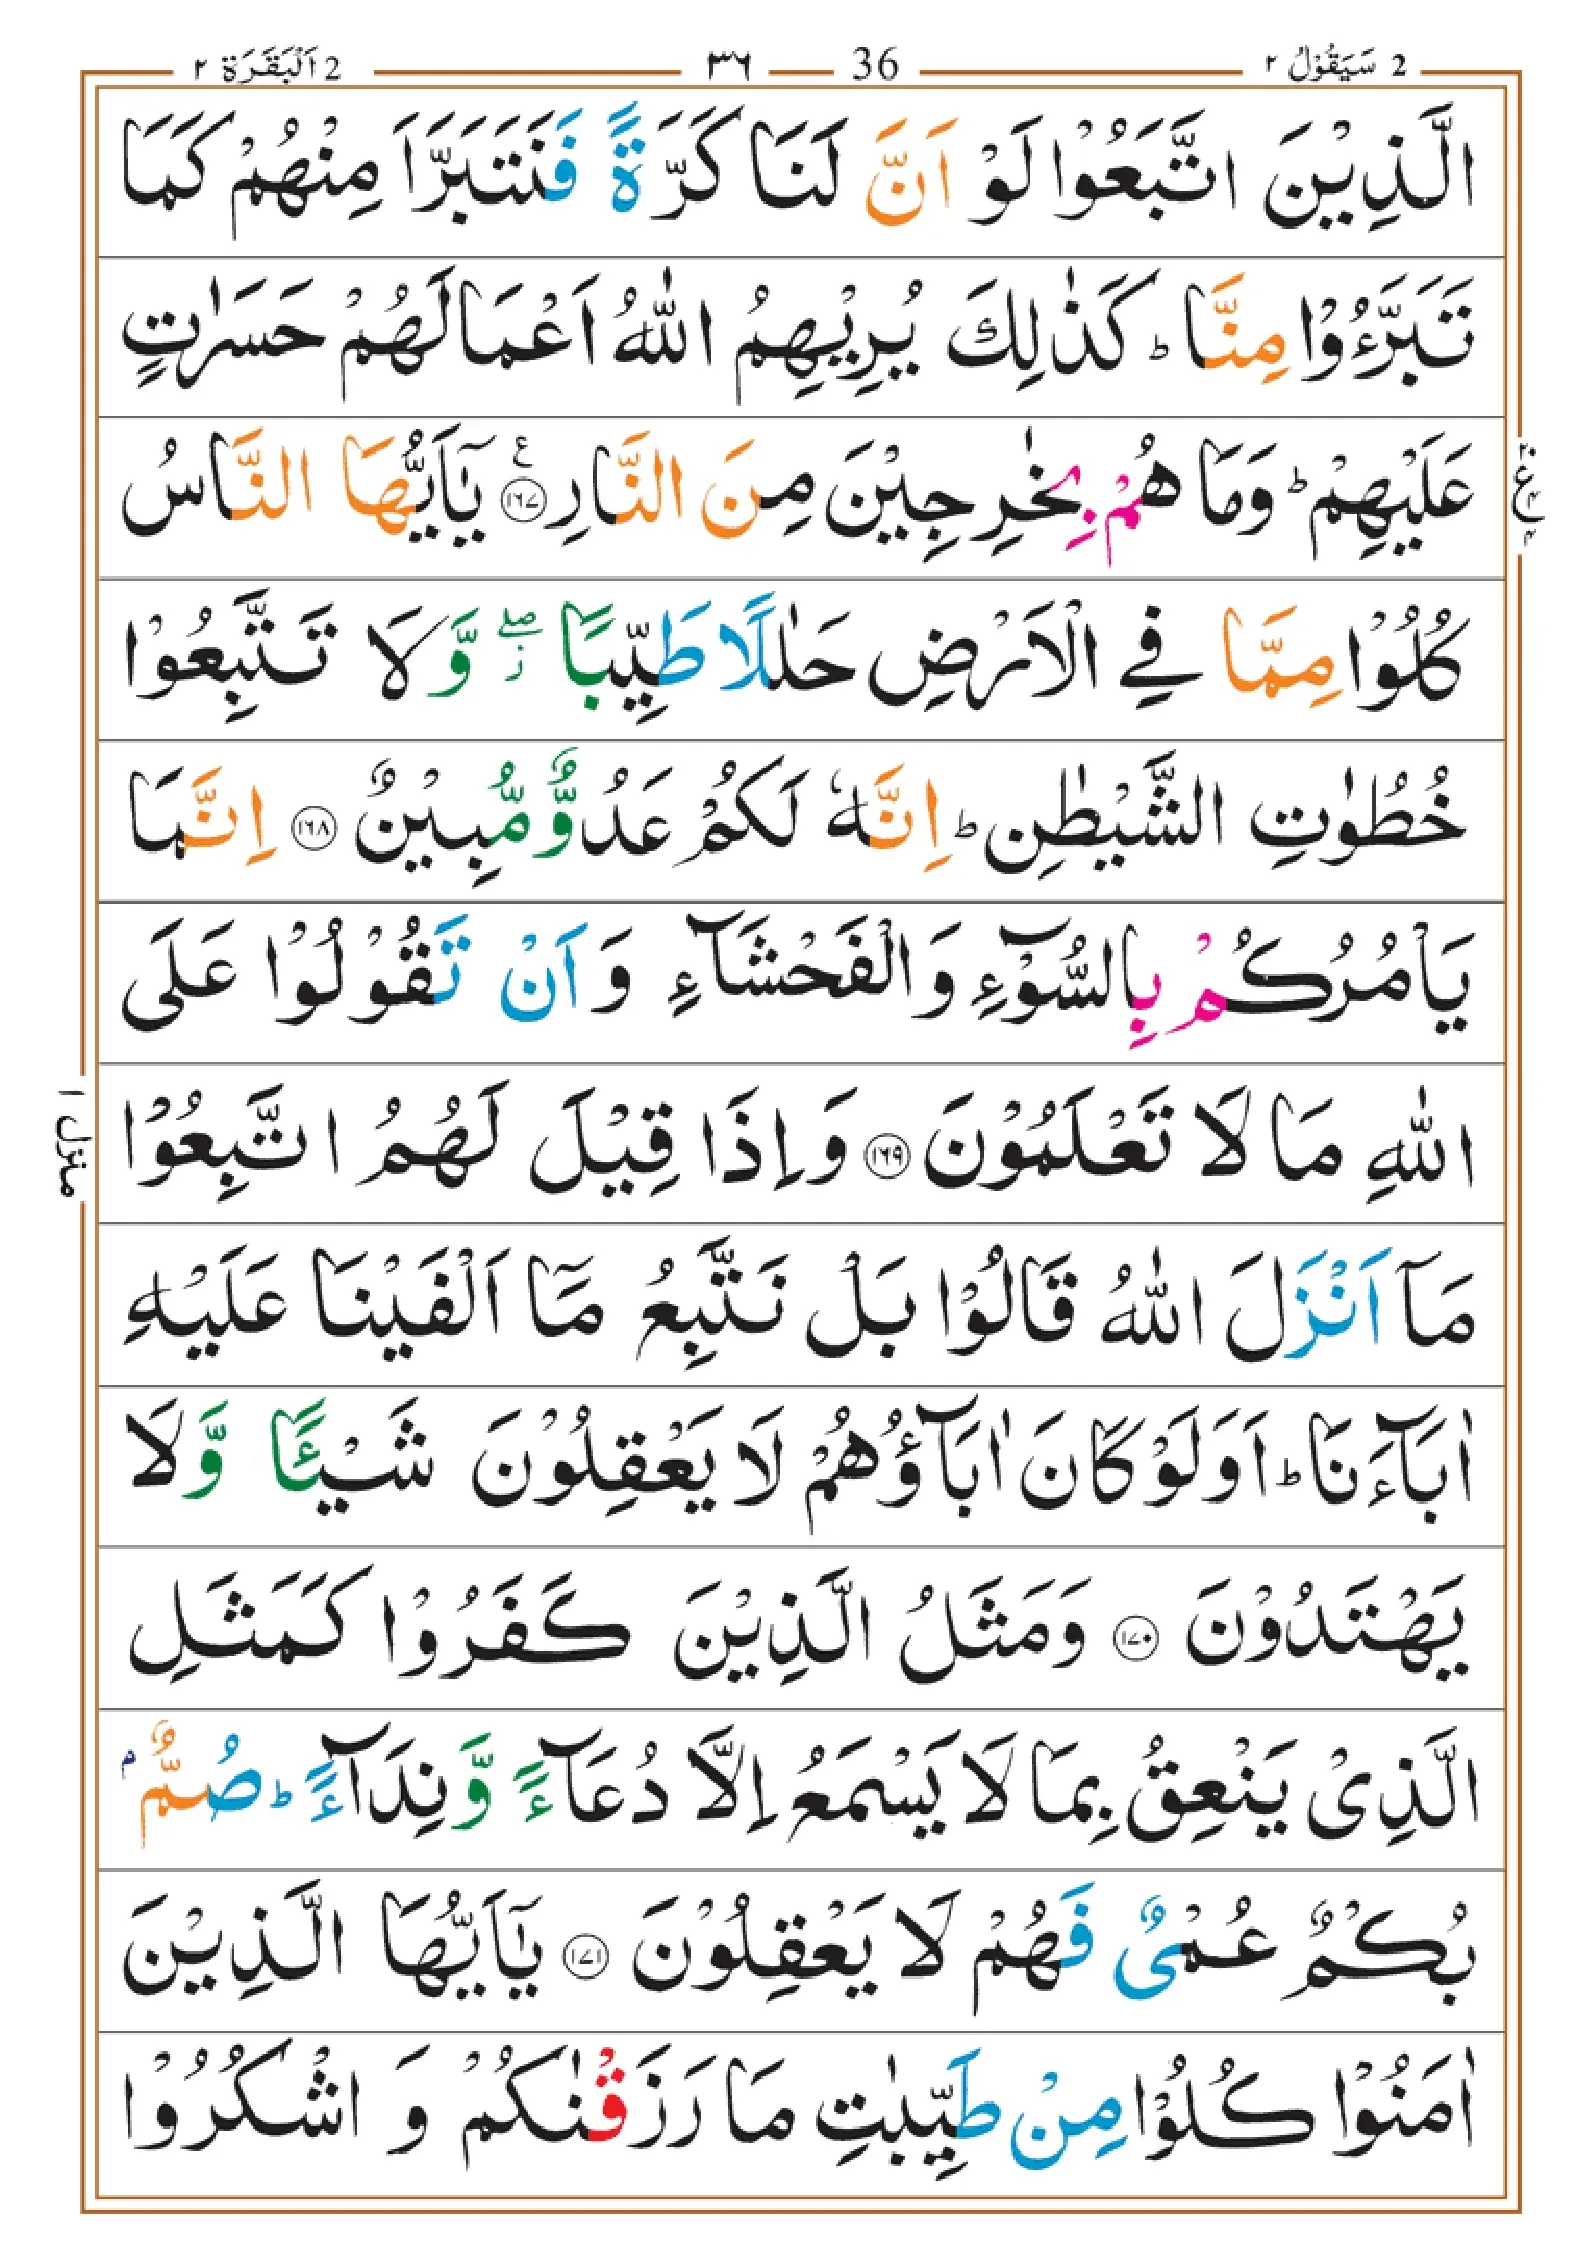 2 سَيَقُوْلُ ٢
36 ٣٦
2 اَلْبَقَرَة ٢
الَّذِيْنَ اتَّبَعُوْا لَوْ اَنَّ لَنَا كَرَّةً فَنَتَبَرَّاَ مِنْهُمْ كَمَا
تَبَرَّءُوْا مِنَّا ؕ كَذٰلِكَ يُرِيْهِمُ اللّٰهُ اَعْمَالَهُمْ حَسَرٰتٍ
عَلَيْهِمْ ؕ وَمَا هُمْ بِخٰرِجِيْنَ مِنَ النَّارِ ۧ ﴿١٦٧﴾ يٰۤاَيُّهَا النَّاسُ
كُلُوْا مِمَّا فِي الْاَرْضِ حَلٰلًا طَيِّبًا ۖ ز وَّلَا تَتَّبِعُوْا
خُطُوٰتِ الشَّيْطٰنِ ؕ اِنَّهٗ لَكُمْ عَدُوٌّ مُّبِيْنٌ ﴿١٦٨﴾ اِنَّمَا
يَاْمُرُكُمْ بِالسُّوْٓءِ وَالْفَحْشَآءِ وَاَنْ تَقُوْلُوْا عَلَى
اللّٰهِ مَا لَا تَعْلَمُوْنَ ﴿١٦٩﴾ وَاِذَا قِيْلَ لَهُمُ اتَّبِعُوْا
مَاۤ اَنْزَلَ اللّٰهُ قَالُوْا بَلْ نَتَّبِعُ مَاۤ اَلْفَيْنَا عَلَيْهِ
اٰبَآءَنَا ؕ اَوَلَوْ كَانَ اٰبَآؤُهُمْ لَا يَعْقِلُوْنَ شَيْـًٔا وَّلَا
يَهْتَدُوْنَ ﴿١٧٠﴾ وَمَثَلُ الَّذِيْنَ كَفَرُوْا كَمَثَلِ
الَّذِىْ يَنْعِقُ بِمَا لَا يَسْمَعُ اِلَّا دُعَآءً وَّنِدَآءً ؕ صُمٌّۢ
بُكْمٌ عُمْىٌ فَهُمْ لَا يَعْقِلُوْنَ ﴿١٧١﴾ يٰۤاَيُّهَا الَّذِيْنَ
اٰمَنُوْا كُلُوْا مِنْ طَيِّبٰتِ مَا رَزَقْنٰكُمْ وَ اشْكُرُوْا
منزل ١